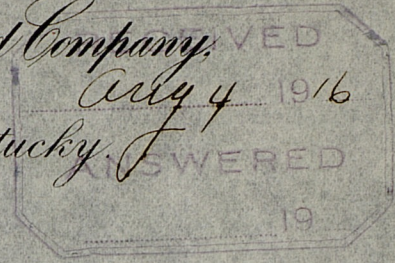 d Company,
IVED
Aug 4 1916
tucky.
ANSWERED
19